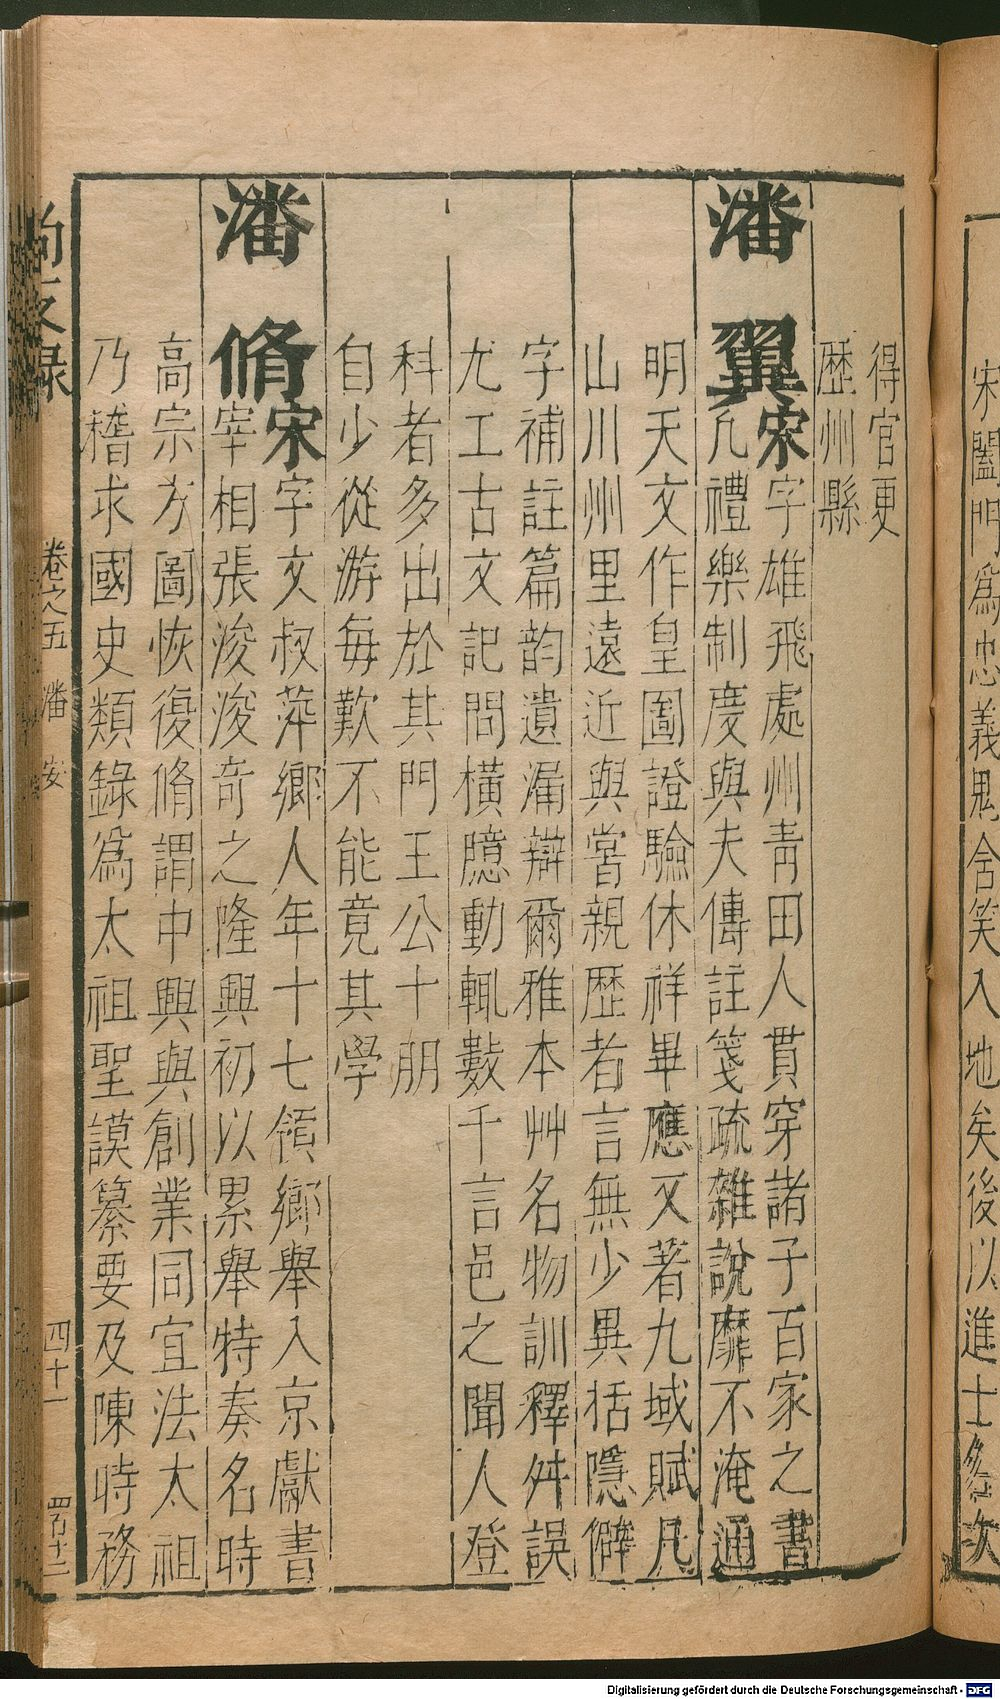 宋闔門爲忠義鬼含笑入地矣後以進士參次
得官更
歷州縣
潘翼宋字雄飛處州青田人貫穿諸子百家之書
凢禮樂制度與夫傳註箋疏雜說靡不淹通
明天文作皇圖證驗休祥畢應又著九域賦凡
山川州里遠近與嘗親歷者言無少異括隱僻
字補註篇韵遺漏辯爾雅本艸名物訓釋舛誤
尤工古文記問橫臆動輒數千言邑之聞人登
科者多出於其門王公十朋
自少從游每歎不能竟其學
潘脩宋字文叔萍鄉人年十七領鄉舉入京獻書
宰相張浚浚奇之隆興初以累舉特奏名時
高宗方圖恢復脩謂中興與創業同宜法太祖
乃稽求國史類錄爲太祖聖謨纂要及陳時務
卷之五 潘 安
四十一
Digitalisierung gefördert durch die Deutsche Forschungsgemeinschaft - DFG